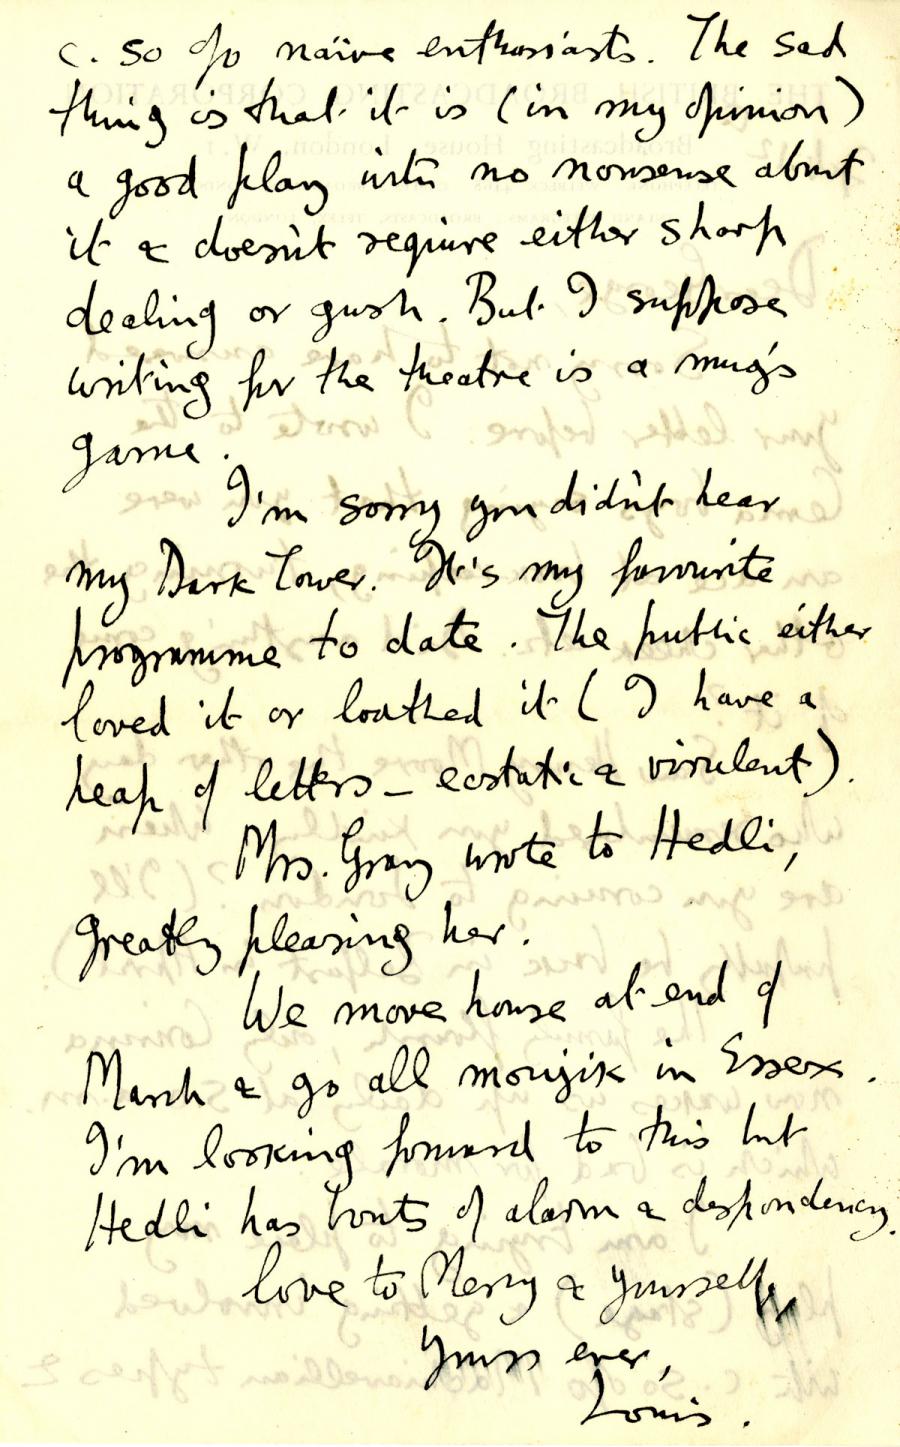 c. 50 o/o naïve enthusiasts. The sad
thing is that it is (in my opinion)
a good play with no nonsense about
it & doesn't require either sharp
dealing or gush. But I suppose
writing for the theatre is a mug's
game.
I'm sorry you didn't hear
my Dark Tower. It's my favourite
programme to date. The public either
loved it or loathed it (I have a
heap of letters – ecstatic & virulent).
Mrs. Gray wrote to Hedli,
greatly pleasing her.
We move house at end of
March & go all moujik in Essex.
I'm looking forward to this but
Hedli has bouts of alarm & despondency.
love to Mercy & yourself,
Yours ever,
Louis.